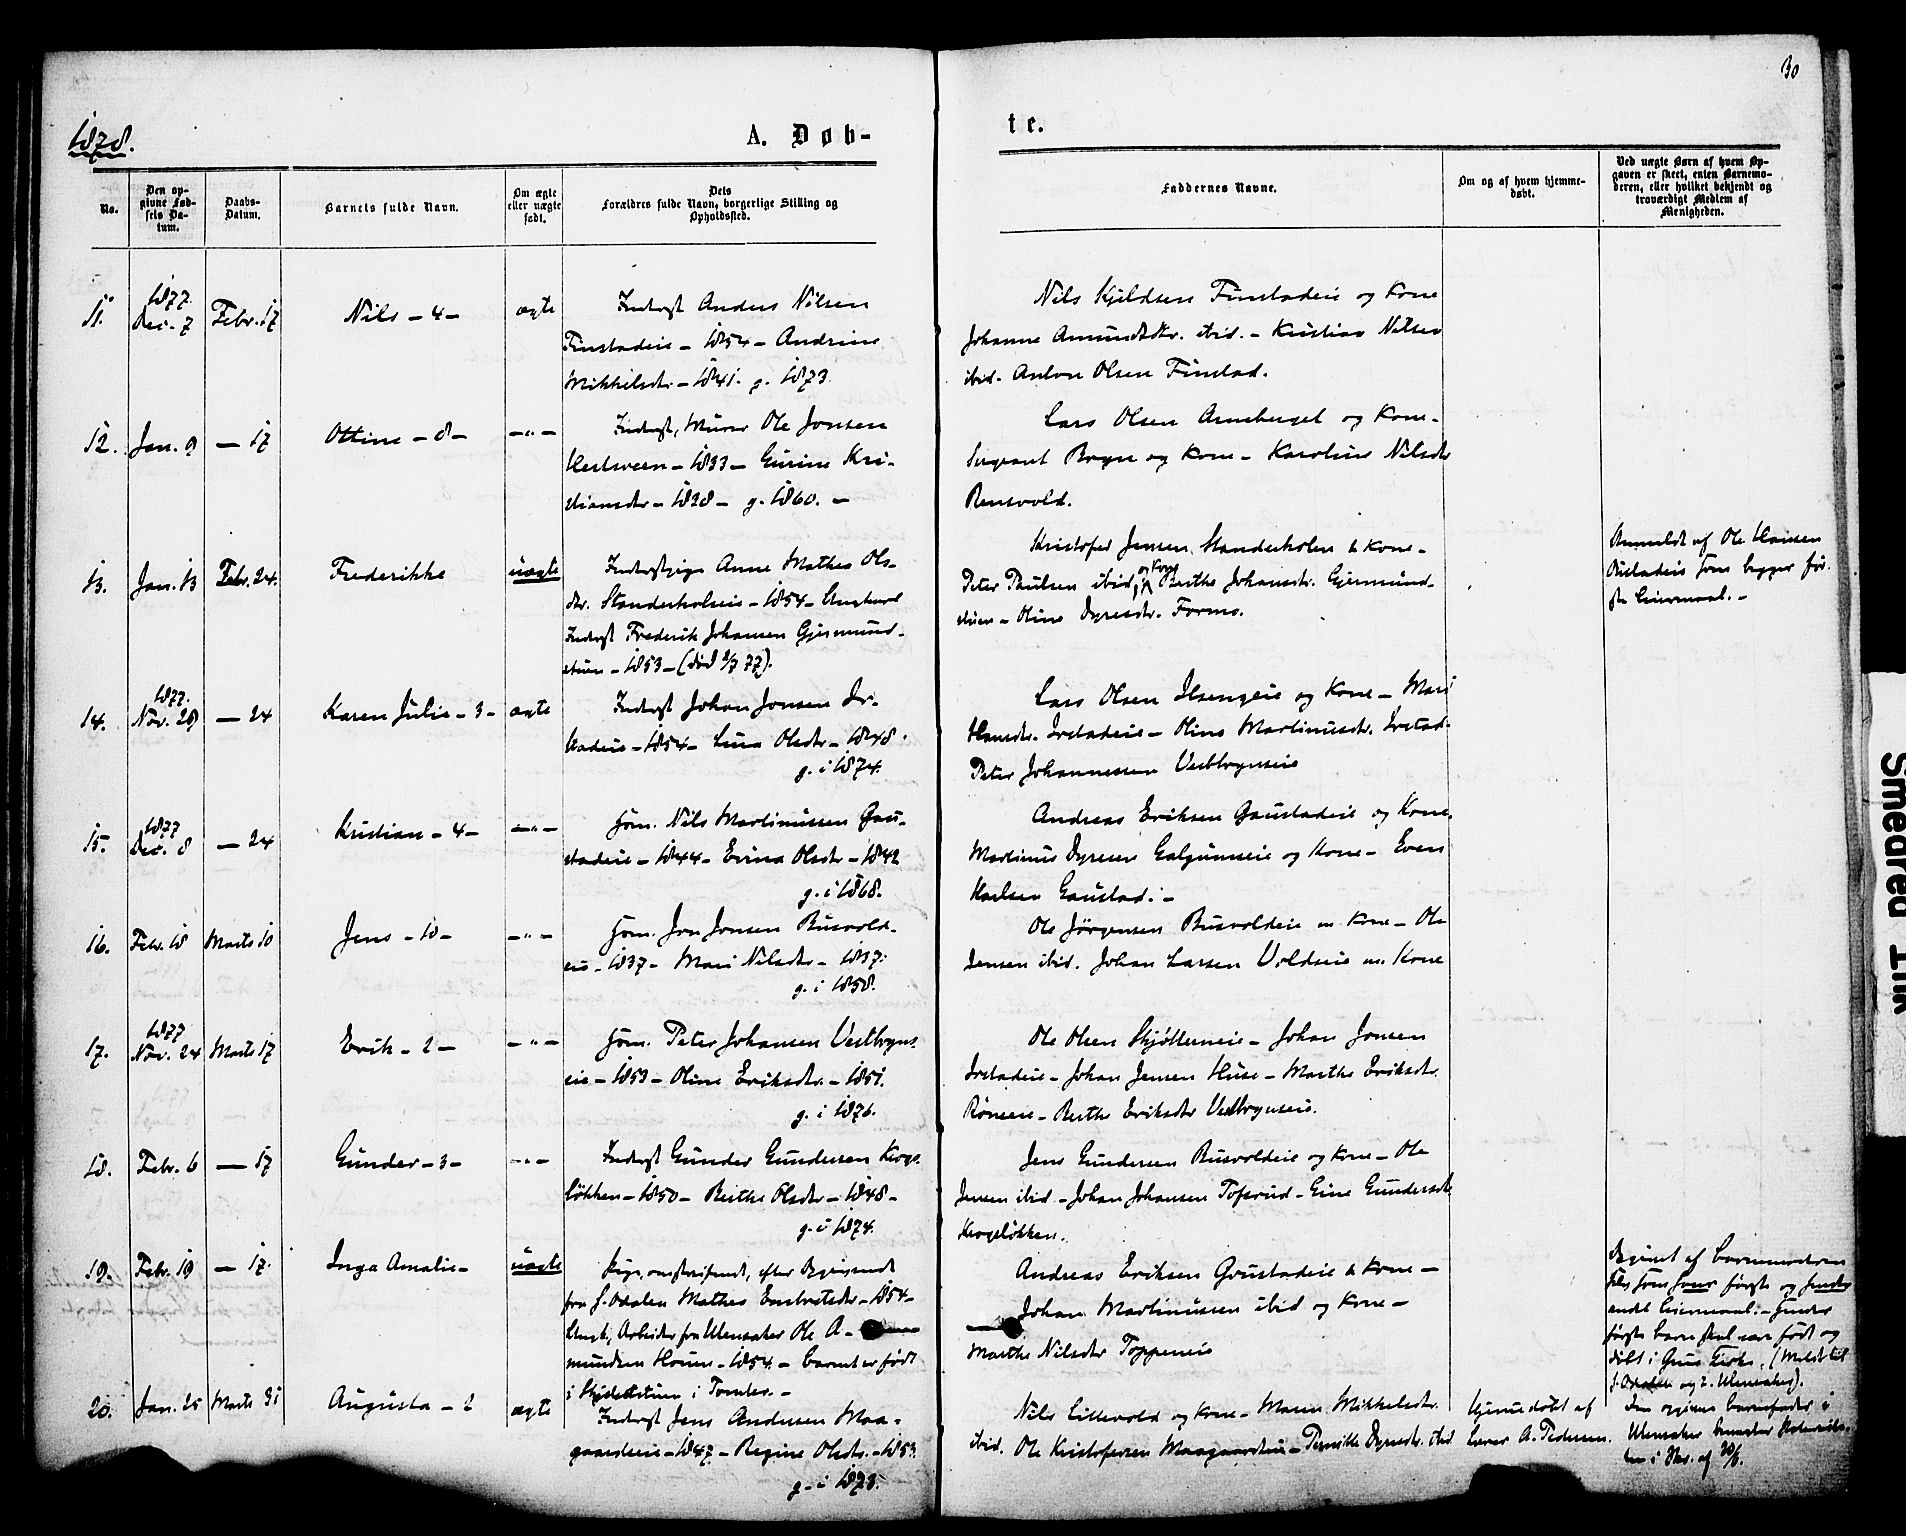 30
1878.
A. Døb-
te.
No.
Den op-
givne Fød-
sels Da-
tum.
Daabs-
Datum.
Barnets fulde Navn.
Om ægte
eller uægte
født.
Dets
Forældres fulde Navn, borgerlige Stilling og
Opholdssted.
Faddernes Navne.
Om og af hvem hjemme-
døbt.
Ved uægte Børn af hvem Op-
gaven er skeet, enten Barnemo-
deren, eller hvilket bekjendt og
troværdigt Medlem af
Menigheden.
11.
1877.
Dec. 7
Febr. 17
Nils - 4 -
ægte
Inderst Anders Nilsen
Finstadeie - 1854 - Andrine
Mikkelsdr - 1841. g. 1873.
Nils Kjeldsen Finstadeie og Kone
Johanne Amundsdr. ibid. - Kristian Nilsen
ibid. Anton Olsen Finstad.
12.
Jan. 9
- 17
Ottine - 8 -
-"-
Inderst, Murer Ole Jonsen
- 1833 - Gurine Kri-
stiansdr - 1828 - g. 1860. -
Lars Olsen Arneberget og Kone -
Sergeant Bryn og Kone - Karoline Nilsdr
Rensvold.
13.
Jan. 13
Febr. 24.
Frederikke
uægte
Inderstpige Anne Mathea Ols-
dr. Standerholeie - 1854 - Ungkarl
Inderst Frederik Johansen Gjermund-
stuen - 1853 - (død 2/7 77).
Kristofer Jensen Standerholen & Kone -
Peter Paulsen ibid og Kone, Berthe Johansdr. Gjermund-
stuen - Oline Dyresdr. Formo.
Anmeldt af Ole Hansen
Rustadeie som begges før-
ste Leiermaal. -
14.
1877.
Nov. 29
- 24
Karen Julie - 3 -
ægte
Inderst Johan Jonsen Ir-
stadeie - 1854 - Lina Olsdr - 1848.
g. i 1874.
Lars Olsen Ilsengeie og Kone - Mari
Hansdr. Irstadeie - Oline Martinusdr. Irstad-
Peter Johannessen Vestbryneie
15.
1877
Dec. 8
- 24
Kristian - 4 -
-"-
Hsm. Nils Martinussen Gau-
stadeie - 1844 - Evina Olsdr - 1842
g. i 1868.
Andreas Eriksen Gaustadeie og Kone,
Martinus Dyresen Galguumeie og Kone - Even
Karlsen Gaustad. -
16.
Febr. 18
Marts 10
Jens - 10 -
-"-
Hsm. Jon Jonsen Busvold-
eie - 1837 - Mari Nilsdr - 1837.
g. i 1858.
Ole Jørgensen Busvoldeie m Kone - Ole
Jensen ibid. Johan Larsen Voldseie m. Kone
17.
1877
Nov. 24
Marts 17
Erik - 2 -
-"-
Hsm. Peter Johansen Vestbryns-
eie - 1853 - Oline Eriksdr. - 1851.
g. i 1876.
Ole Olsen Skjølteneie - Johan Jonsen
Irstadeie - Johan Jensen Huse - Marthe Eriksdr.
Rønseie - Berthe Eriksdr Vestbrynseie.
18.
Febr. 6
- 17
Gunder - 3 -
-"-
Inderst Gunder Gundersen Krogs-
løkken - 1850 - Berthe Olsdr - 1848 -
g. i 1874.
Jens Gundersen Busvoldeie og Kone - Ole
Jensen ibid. - Johan Johansen Tofsrud - Gine Gundersdr
Krogsløkken.
19.
Febr. 19
- 17.
Inga Amalie -
uægte
Pige, omstreifende, efter Opgivende
fra S. Odalen Mathea Embretsdr. - 1854 -
Ungk, Arbeider fra Ullensaker Ole A-
mundsen Houen - 1854. - Barnet er født
i Skjeletstuen i Tomter. -
Andreas Eriksen Gaustadeie & Kone -
Johan Martinussen ibid og Kone -
Marthe Nilsdr Toppeneie
Opgivet af Barnemoderen
selv som hans første og hendes
andet Leiermaal. - Hendes
første Barn skal være født og
døbt i Grue Kirke, (Meldt til
S. Odalen og t. Ullensaker).
20.
Jan. 25
Marts 31
Augusta - 2
ægte
Inderst Jens Andersen Maa-
gaardseie - 1847 - Regine Olsdr. - 1853.
g. i 1873.
Nils Lillevold og Kone - Maren Mikkelsdr.
ibid. Ole Kristofersen Maagaardseie - Pernille Dyresdr. ibid
Hjemmedøbt af
Lærer A. Pedersen.
Den opgivne Barnefader i
Ullensaker benægter
i Skr. af 20/6.
Smeared Ink